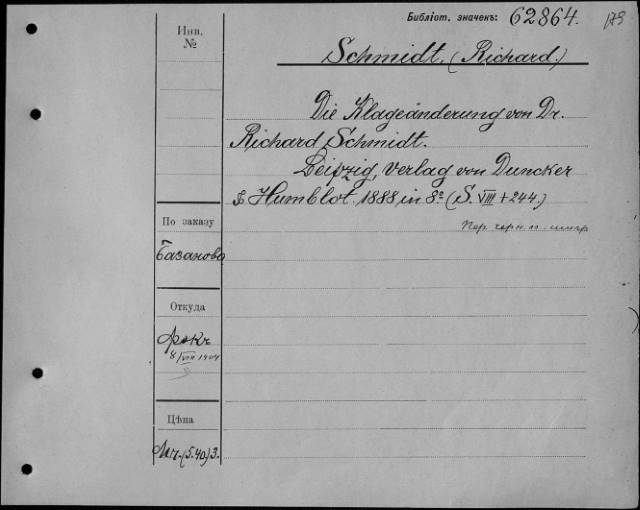 Библіот. значекъ: 62864.
Инв.
№
Schmidt. (Richard.)
Die Klageänderung von Dr.
Richard Schmidt.
Leipzig, Verlag von Duncker
& Humblot. 1888 in 8º (S. VIII + 244.)
По заказу
Базанова
Откуда
8/VIII 1904
Цѣна
(5.40) 3.